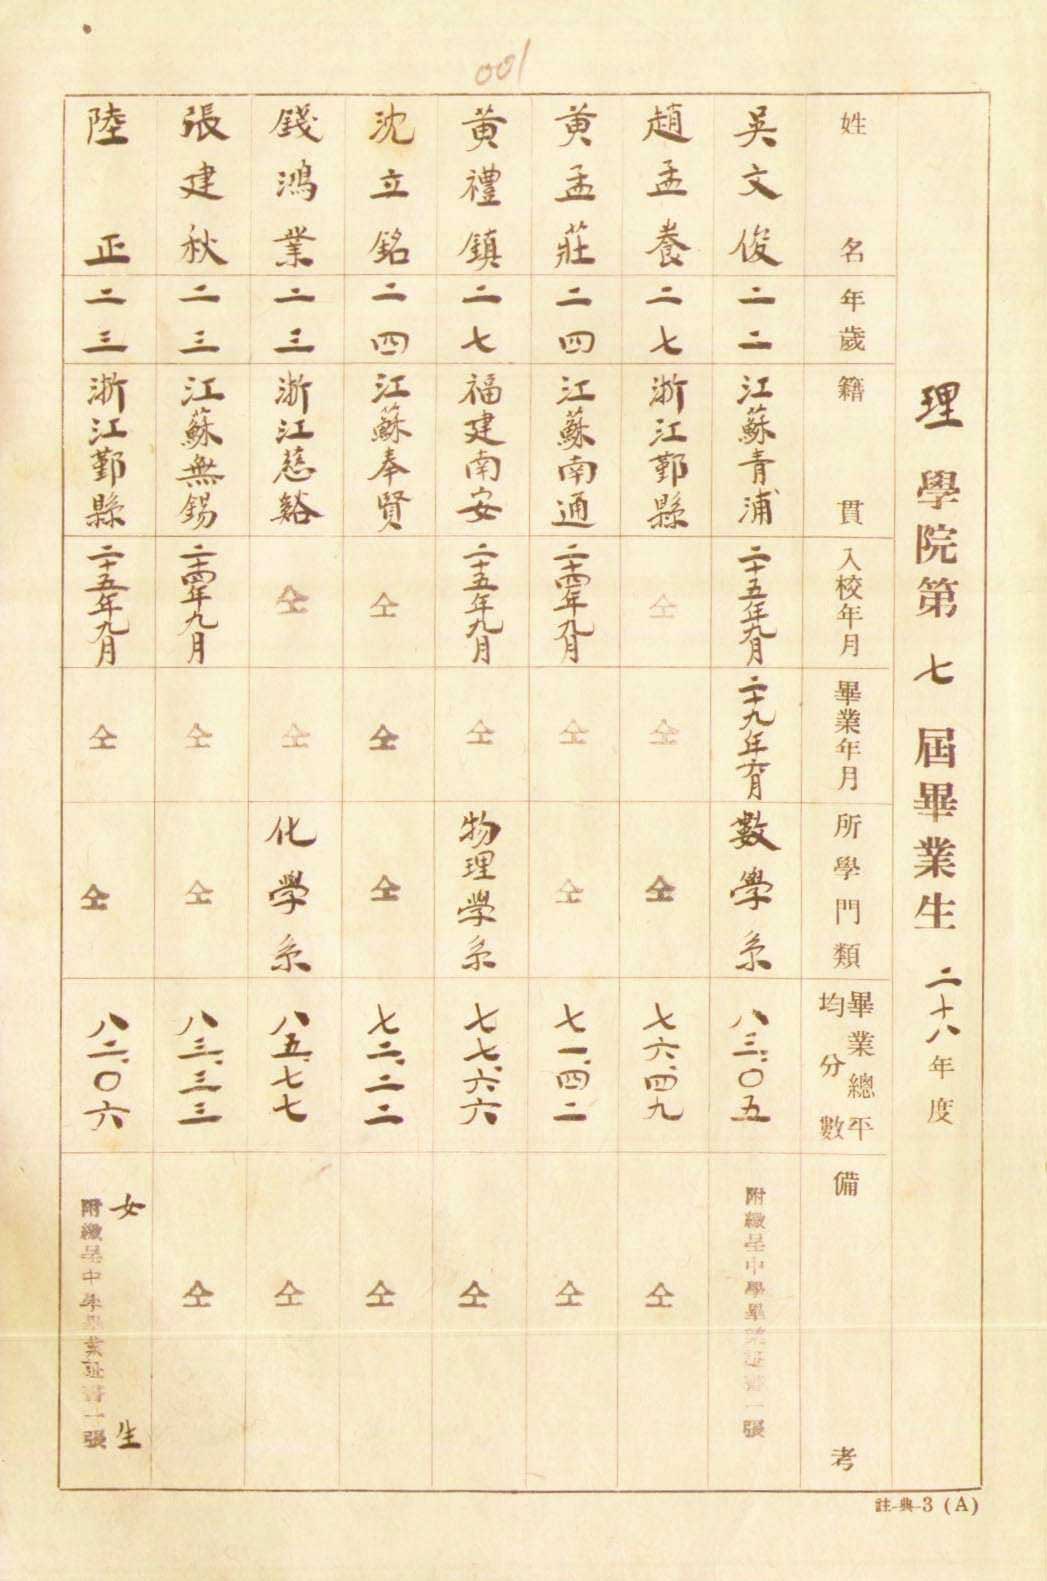 001
理學院第七屆畢業生 二十八年度
姓名 年歲 籍貫 入校年月 畢業年月 所學門類 畢業總平均分數 備考
吳文俊 二二 江蘇青浦 二十五年九月 二十九年六月 數學系 八三.〇五 附繳呈中學畢業証書一張
趙孟養 二七 浙江鄞縣 仝 仝 仝 七六.四九 仝
黃孟莊 二四 江蘇南通 二十四年九月 仝 仝 七一.四二 仝
黃禮鎮 二七 福建南安 二十五年九月 仝 物理學系 七七.六六 仝
沈立銘 二四 江蘇奉賢 仝 仝 仝 七二.二二 仝
錢鴻業 二三 浙江慈谿 仝 仝 化學系 八五.七七 仝
張建秋 二三 江蘇無錫 二十四年九月 仝 仝 八三.三三 仝
陸正 二三 浙江鄞縣 二十五年九月 仝 仝 八二.〇六 女生 附繳呈中學畢業証書一張
註-典-3 (A)